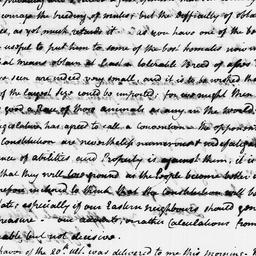 courage the breeding of mules; but the difficulty of obtai
as yet much retards it. as you have one of the bes
useful to put them to some of the best females now
means obtain at least a tolerable breed of
seen are indeed very small, and it is to be wished tha
of the largest size could be imported, for we might then
good a Race of those animals as any in the World
has agreed to call a Convention. the opponents
Constitution are nevertheless numerous & indefatigable
of abilities and Property is against them, it is
that they will lose ground as the People become better
inclined to think that the Constitution will be
especially if our Eastern neighbours should gen
measure. our accounts, or rather Calculations from
able but not decisive.
favor of the 20th Ult. was delivered to me this morning.